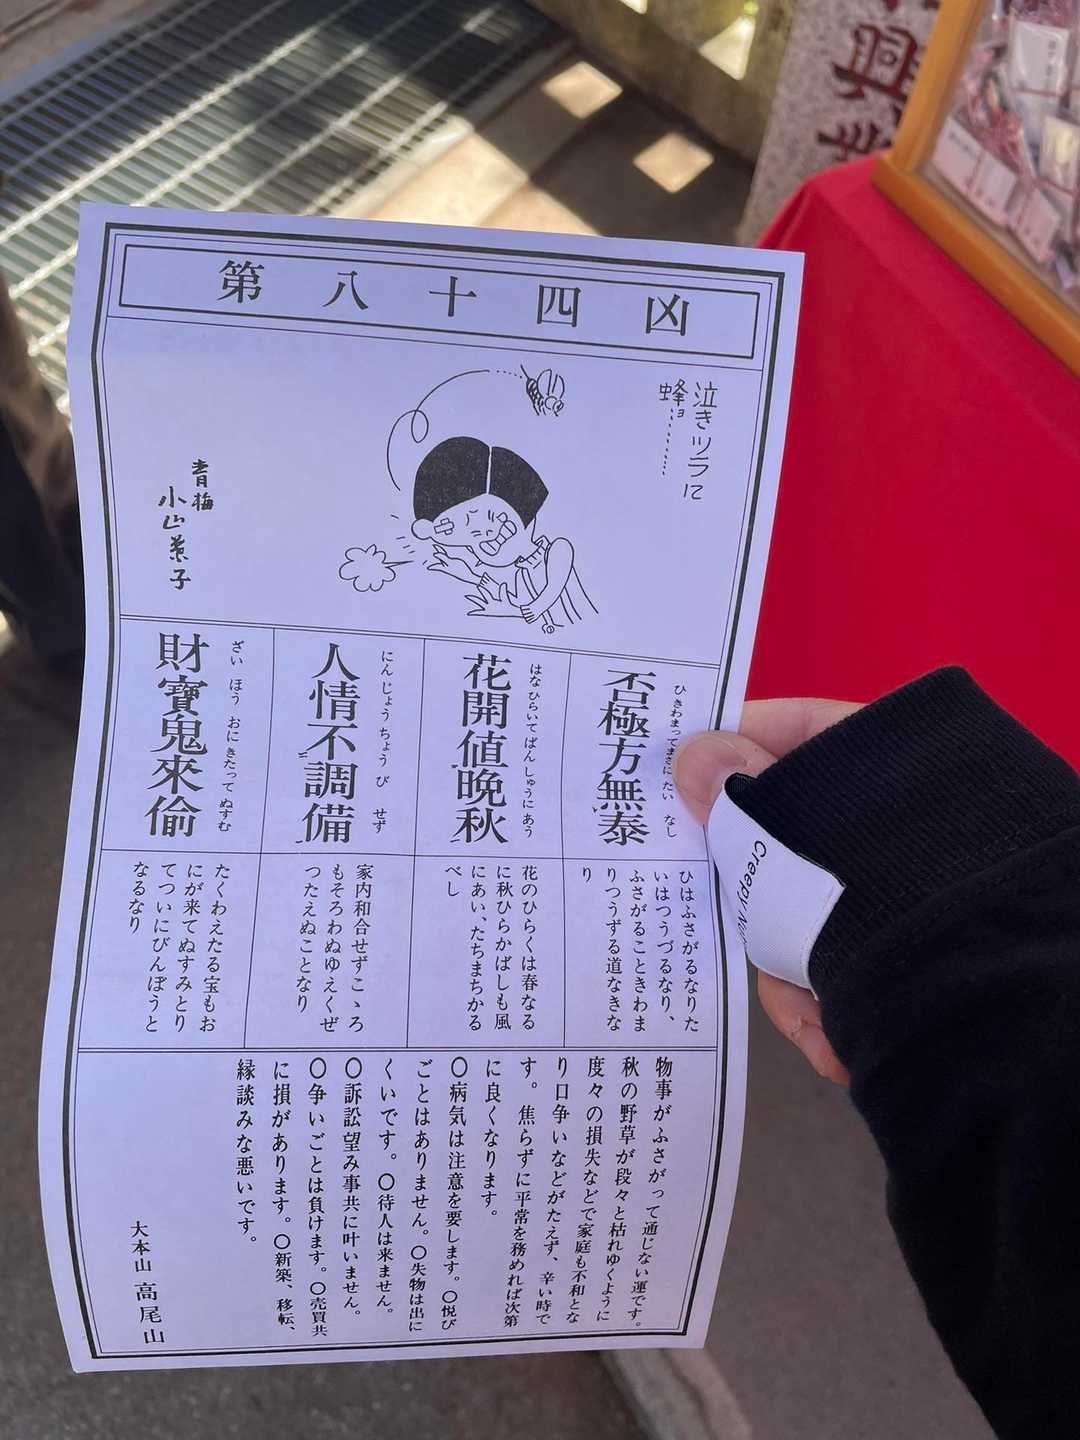 第八十四凶
泣きツラに
蜂ョ………
青梅
小山葉子
ひきわまってまさに たい なし
否極方無泰
はなひらいてばん しゅうに あう
花開値晩秋
にんじょうちょう び せず
人情不調備
ざい ほう おに きたって ぬすむ
財寶鬼來偷
ひはふさがるなりた
いはつうづるなり、
ふさがることきわま
りつうずる道なきな
り
花のひらくは春なる
に秋ひらかばしも風
にあい、たちまちかる
べし
家内和合せずこゝろ
もそろわぬゆえくぜ
つたえぬことなり
たくわえたる宝もお
にが来てぬすみとり
てついにびんぼうと
なるなり
物事がふさがって通じない運です。
秋の野草が段々と枯れゆくように
度々の損失などで家庭も不和とな
り口争いなどがたえず、辛い時で
す。焦らずに平常を務めれば次第
に良くなります。
〇病気は注意を要します。〇悦び
ごとはありません。〇失物は出に
くいです。〇待人は来ません。
〇訴訟望み事共に叶いません。
〇争いごとは負けます。〇売買共
に損があります。〇新築、移転、
縁談みな悪いです。
大本山 高尾山
興
Creepy